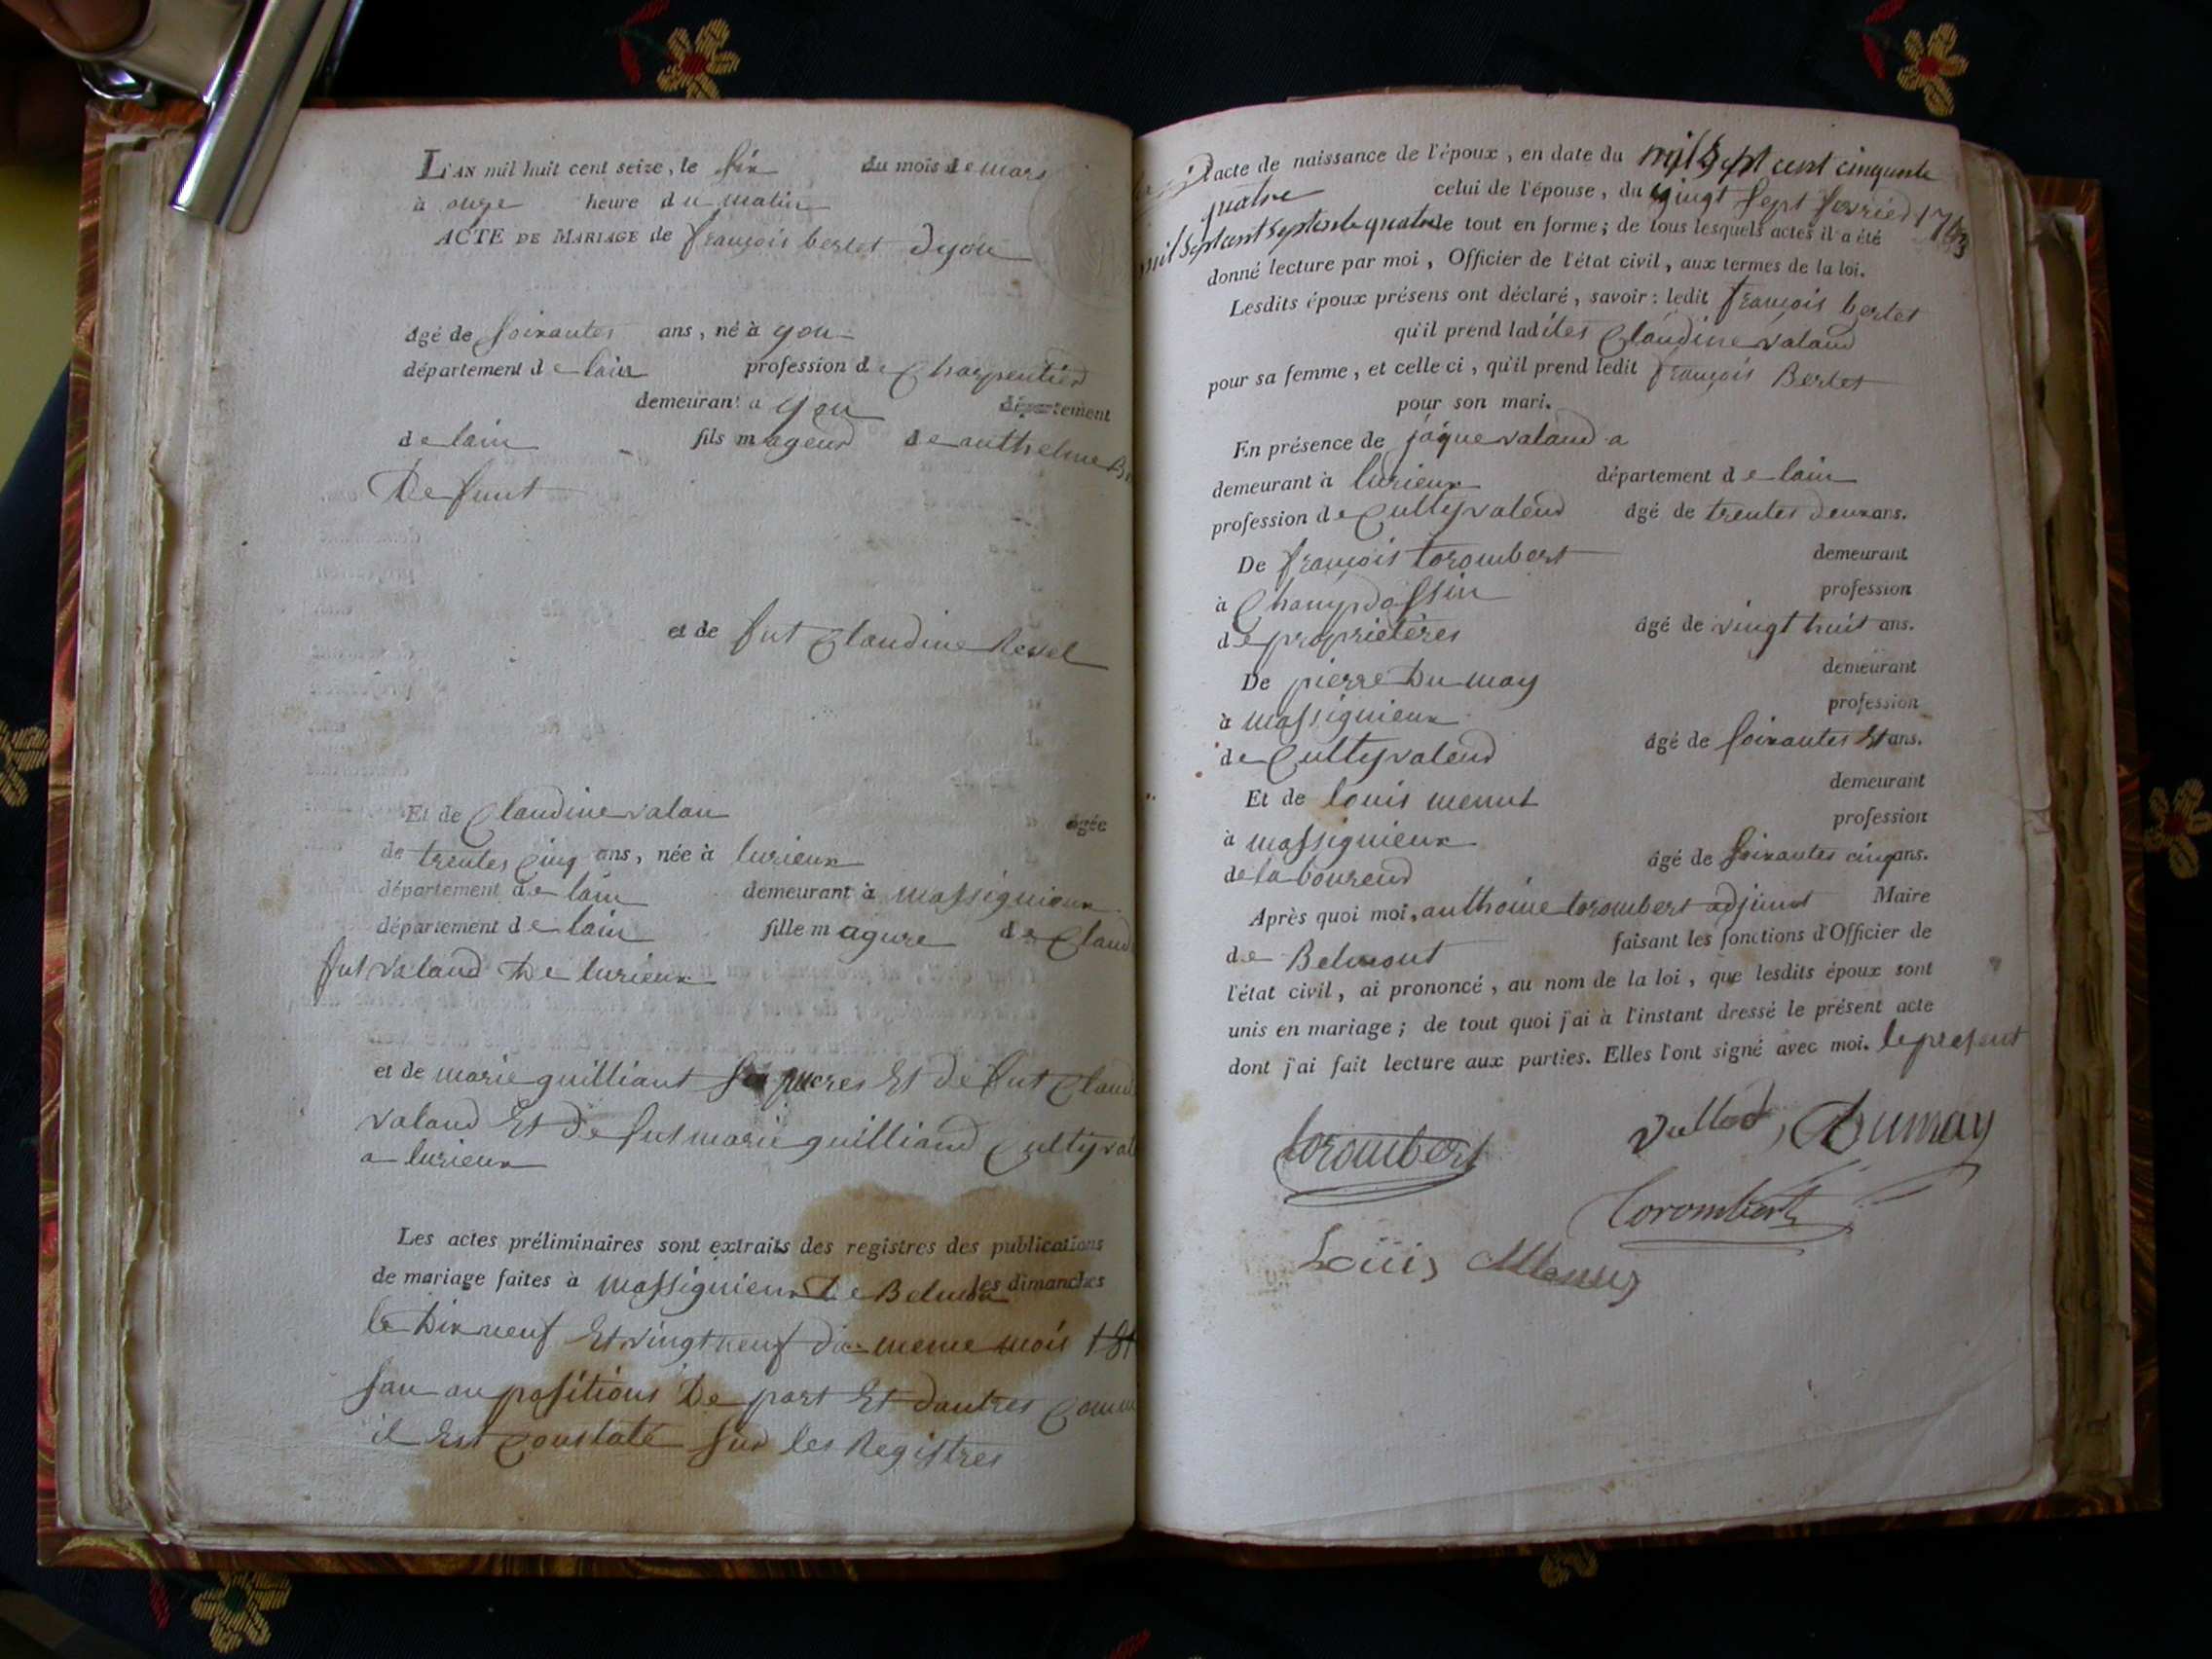 L'AN mil huit cent seize, le six du mois de mars
à onze heure du matin
ACTE DE MARIAGE de françois berlet Dyon
âgé de soixantes ans, né à yon
département de lain profession de Charpentier
demeurant a yon département
de lain fils mageur de anthelme
De funt
et de fut Claudine Revel
Et de Claudine valan âgée
de trentes cinq ans, née à lurieux
département de lain demeurant à massignieux
département de lain fille magure de Claud
fut valand De lurieux
et de marie guilliant meres Et de fut Claud
valand Et De fut marie guilliand
a lurieux
Les actes préliminaires sont extraits des registres des publications
de mariage faites à massignieux De Belmon les dimanches
le Dix neuf Et vingt neuf du meme mois
san aupositions De part Et dautres
il Est Constaté sur les Registres
l'acte de naissance de l'époux, en date du mil Sept cent cinquente
quatre celui de l'épouse, du vingt sept fevrier
mil sept cent septente quatre le tout en forme; de tous lesquels actes il a été
donné lecture par moi, Officier de l'état civil, aux termes de la loi.
Lesdits époux présens ont déclaré, savoir: ledit françois berlet
qu'il prend ladites Claudine valand
pour sa femme, et celle ci, qu'il prend ledit françois Berlet
pour son mari.
En présence de jaque valand a
demeurant à lurieux département de lain
profession de Cultyvateur âgé de trentes deux ans.
De françois torombert demeurant
à Champdossin profession
de proprietères âgé de vingt huit ans.
De pierre Dumay demeurant
à massignieux profession
de Cultyvateur âgé de soixantes Et ans.
Et de louis menut demeurant
à massignieux profession
de laboureur âgé de soixantes cinq ans.
Après quoi moi, anthoine torombert adjoint Maire
de Belmont faisant les fonctions d'Officier de
l'état civil, ai prononcé, au nom de la loi, que lesdits époux sont
unis en mariage; de tout quoi j'ai à l'instant dressé le présent acte
dont j'ai fait lecture aux parties. Elles l'ont signé avec moi. le present
torombert Dumay
torombert
Loüis